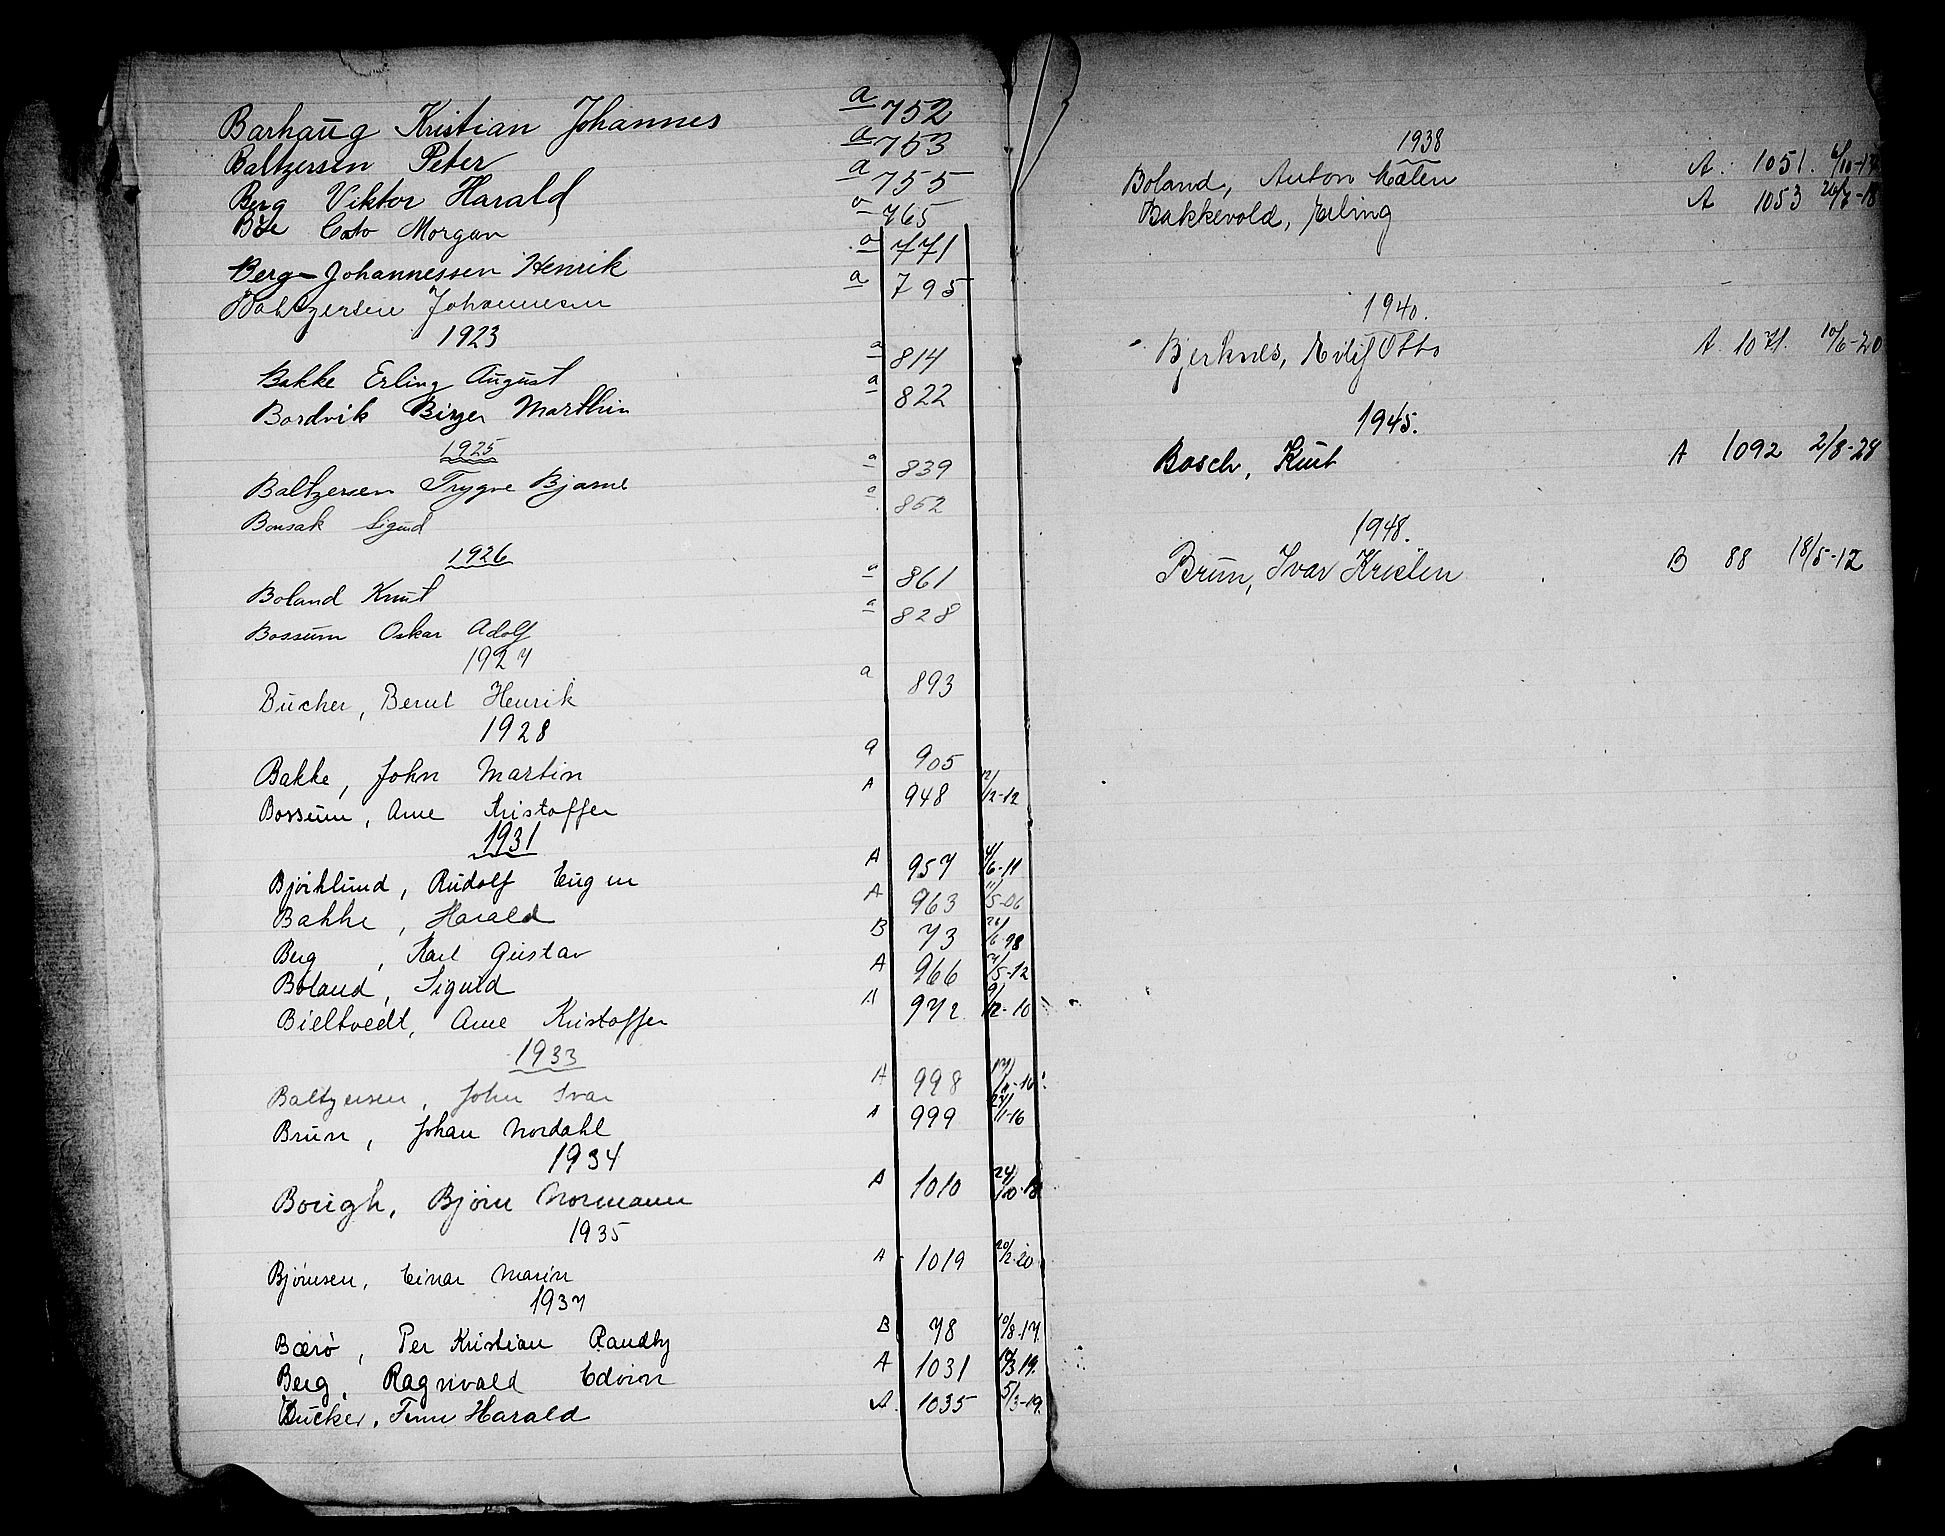 Barhaug Kristian Johannes a 752
Baltzersen Peter a 753
Berg Viktor Harald a 755
Bøe Cato Morgan a 765
Berg-Johannessen Henrik a 771
Baltzersen Johannesen a 795
1923
Bakke Erling August a 814
Bordvik Birger Marthin a 822
1925
Baltzersen Trygve Bjarne a 839
Bonsak Sigurd a 852
1926
Boland Knut a 861
Bossum Oskar Adolf a 828
1927
Bucher, Bernt Henrik a 893
1928
Bakke, John Martin a 905
Bossum, Arne Kristoffer A 948 12/12-12
1931
Bjørklund, Rudolf Eugen A 957 4/6-11
Bakke, Harald A 963 11/5-06
Berg, Karl Gustav B 73 26/6-98
Boland, Sigurd A 966 /5-12
Bieltvedt, Arne Kristoffer A 972 9/12-10
1933
Baltzersen, John Ivar A 998
Brun, Johan Nordahl A 999 27/1-16
1934
Bough, Bjørn Normann A 1010 24/10-18
1935
Bjørnsen, Einar Marin A 1019 20/2-20
1937
Bærø, Per Kristian Randby B 78 10/8-17
Berg, Ragnvald Edvin A 1031 /3 19.
Bucker, Finn Harald A. 1035 5/3-19.
1938
Boland, Anton Malen A. 1051.
Bakkevold, Erling A 1053
1940.
Bjerknes, Eilif Otto A 1071. 10/6-20
1945.
Bosch, Knut A 1092 2/8-28
1948.
Brun, Ivar Kristen B 88 18/5-12